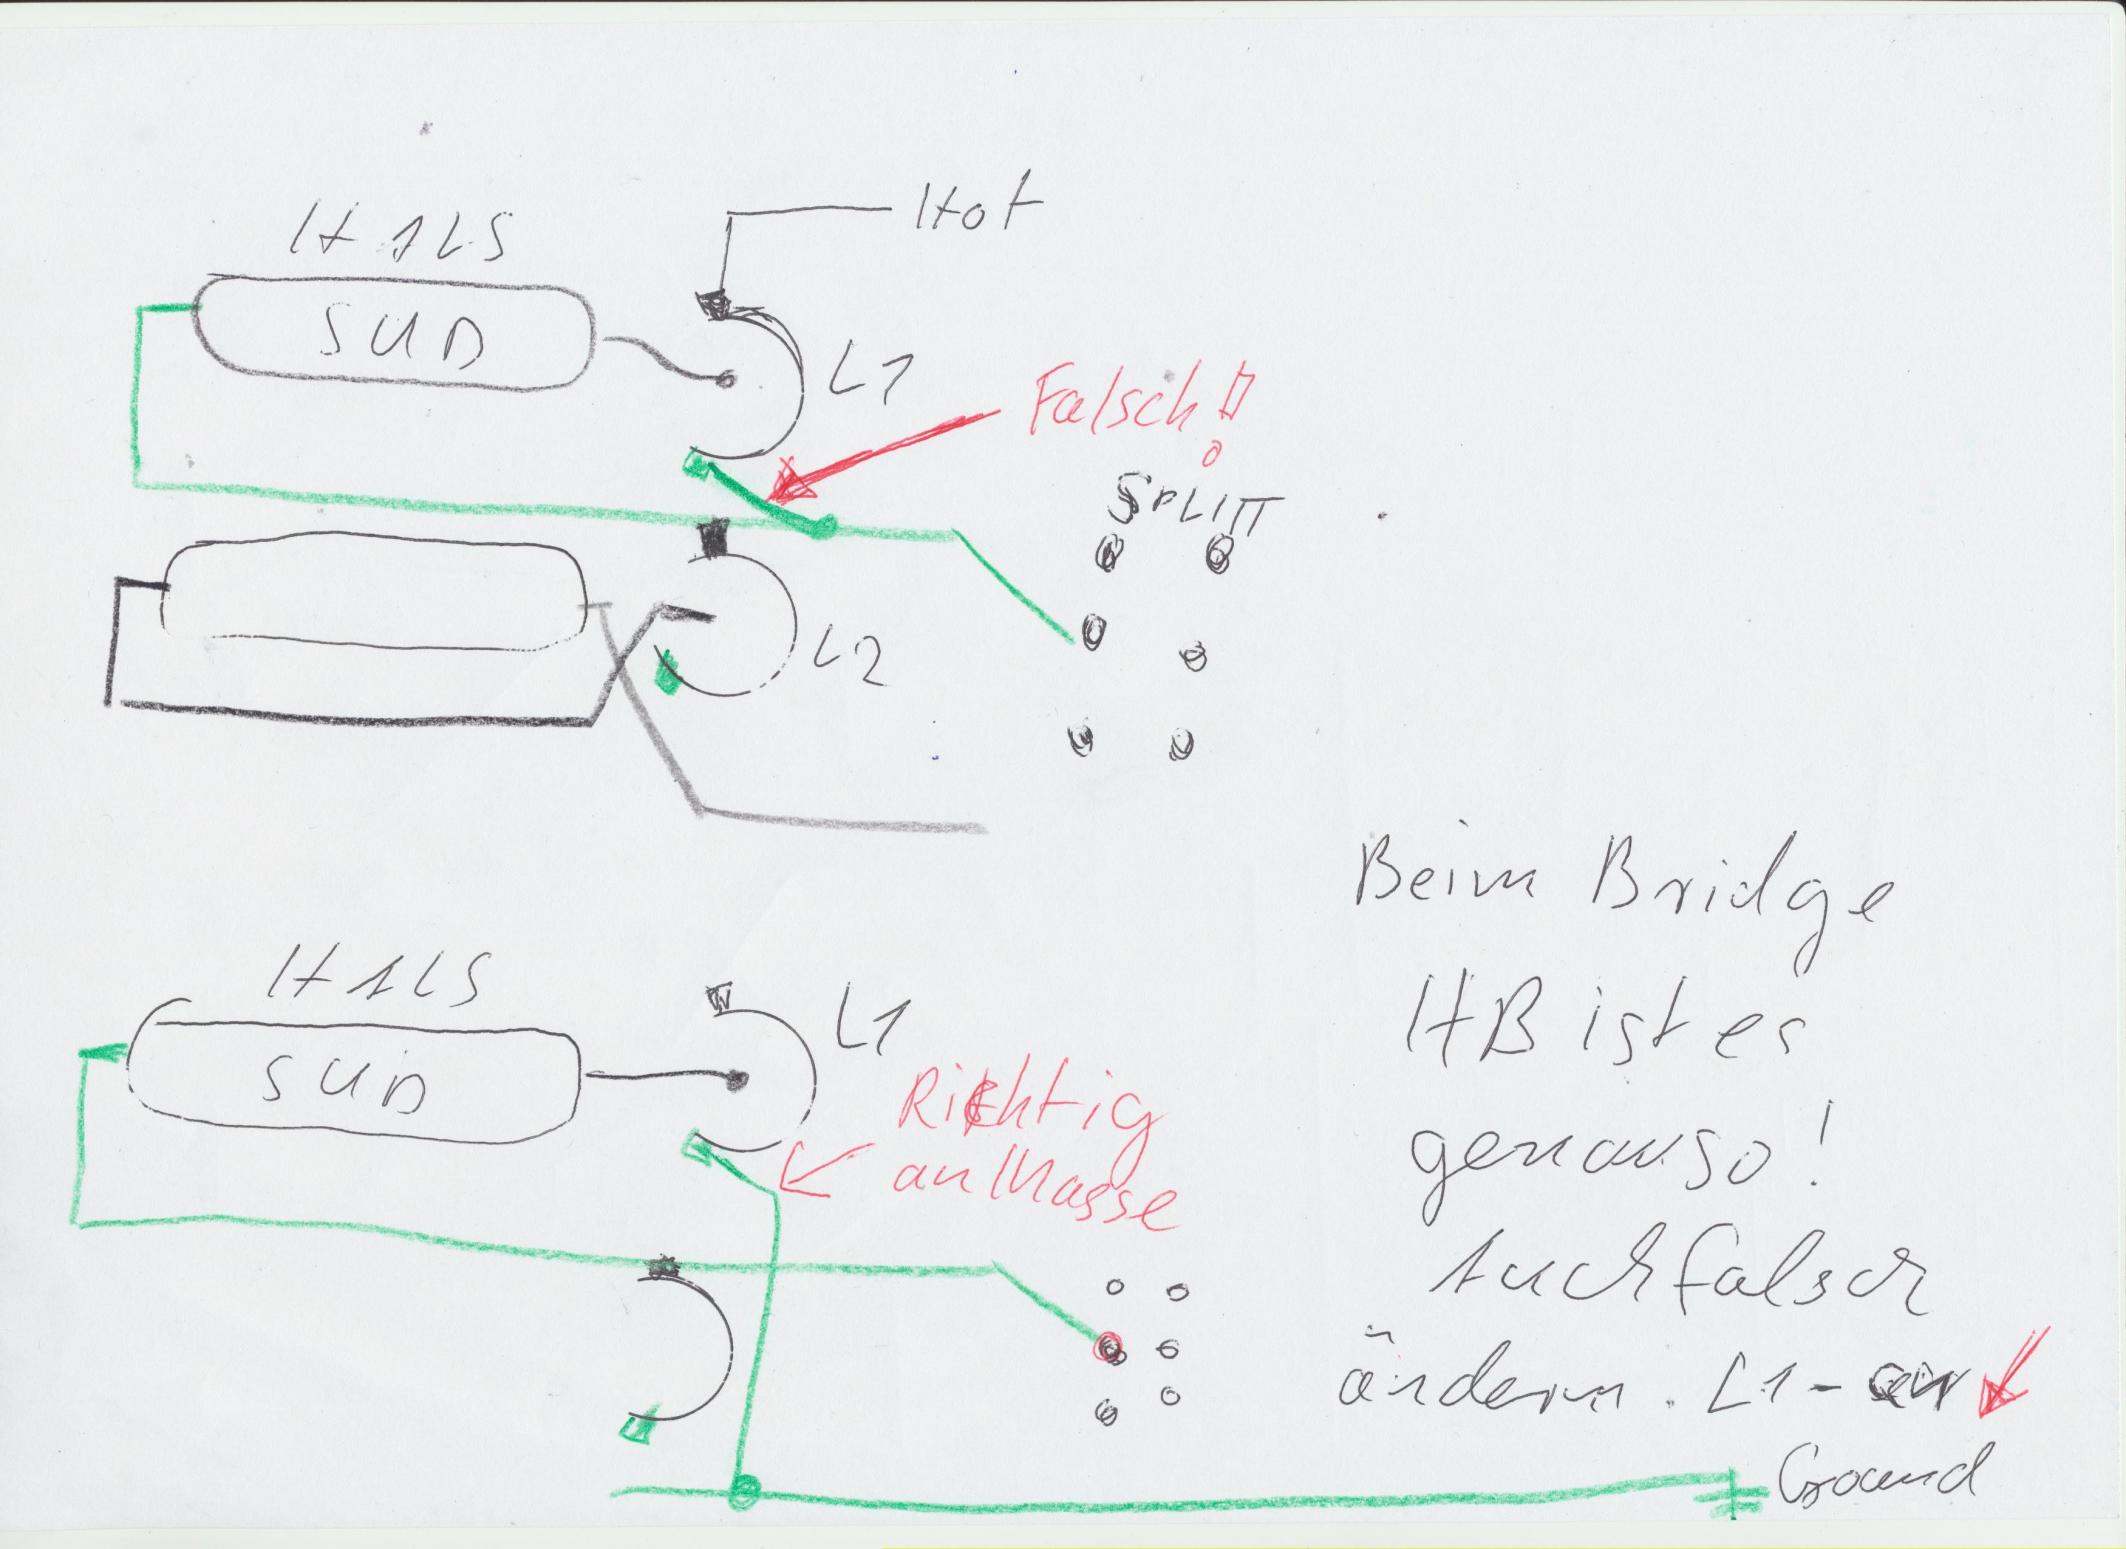 HALS
Hot
SÜD
L1
Falsch!!
SPLITT
L2
HALS
SÜD
L1
Richtig
an Masse
Beim Bridge
HB ist es
genauso!
Auch falsch
ändern. L1-an
Ground